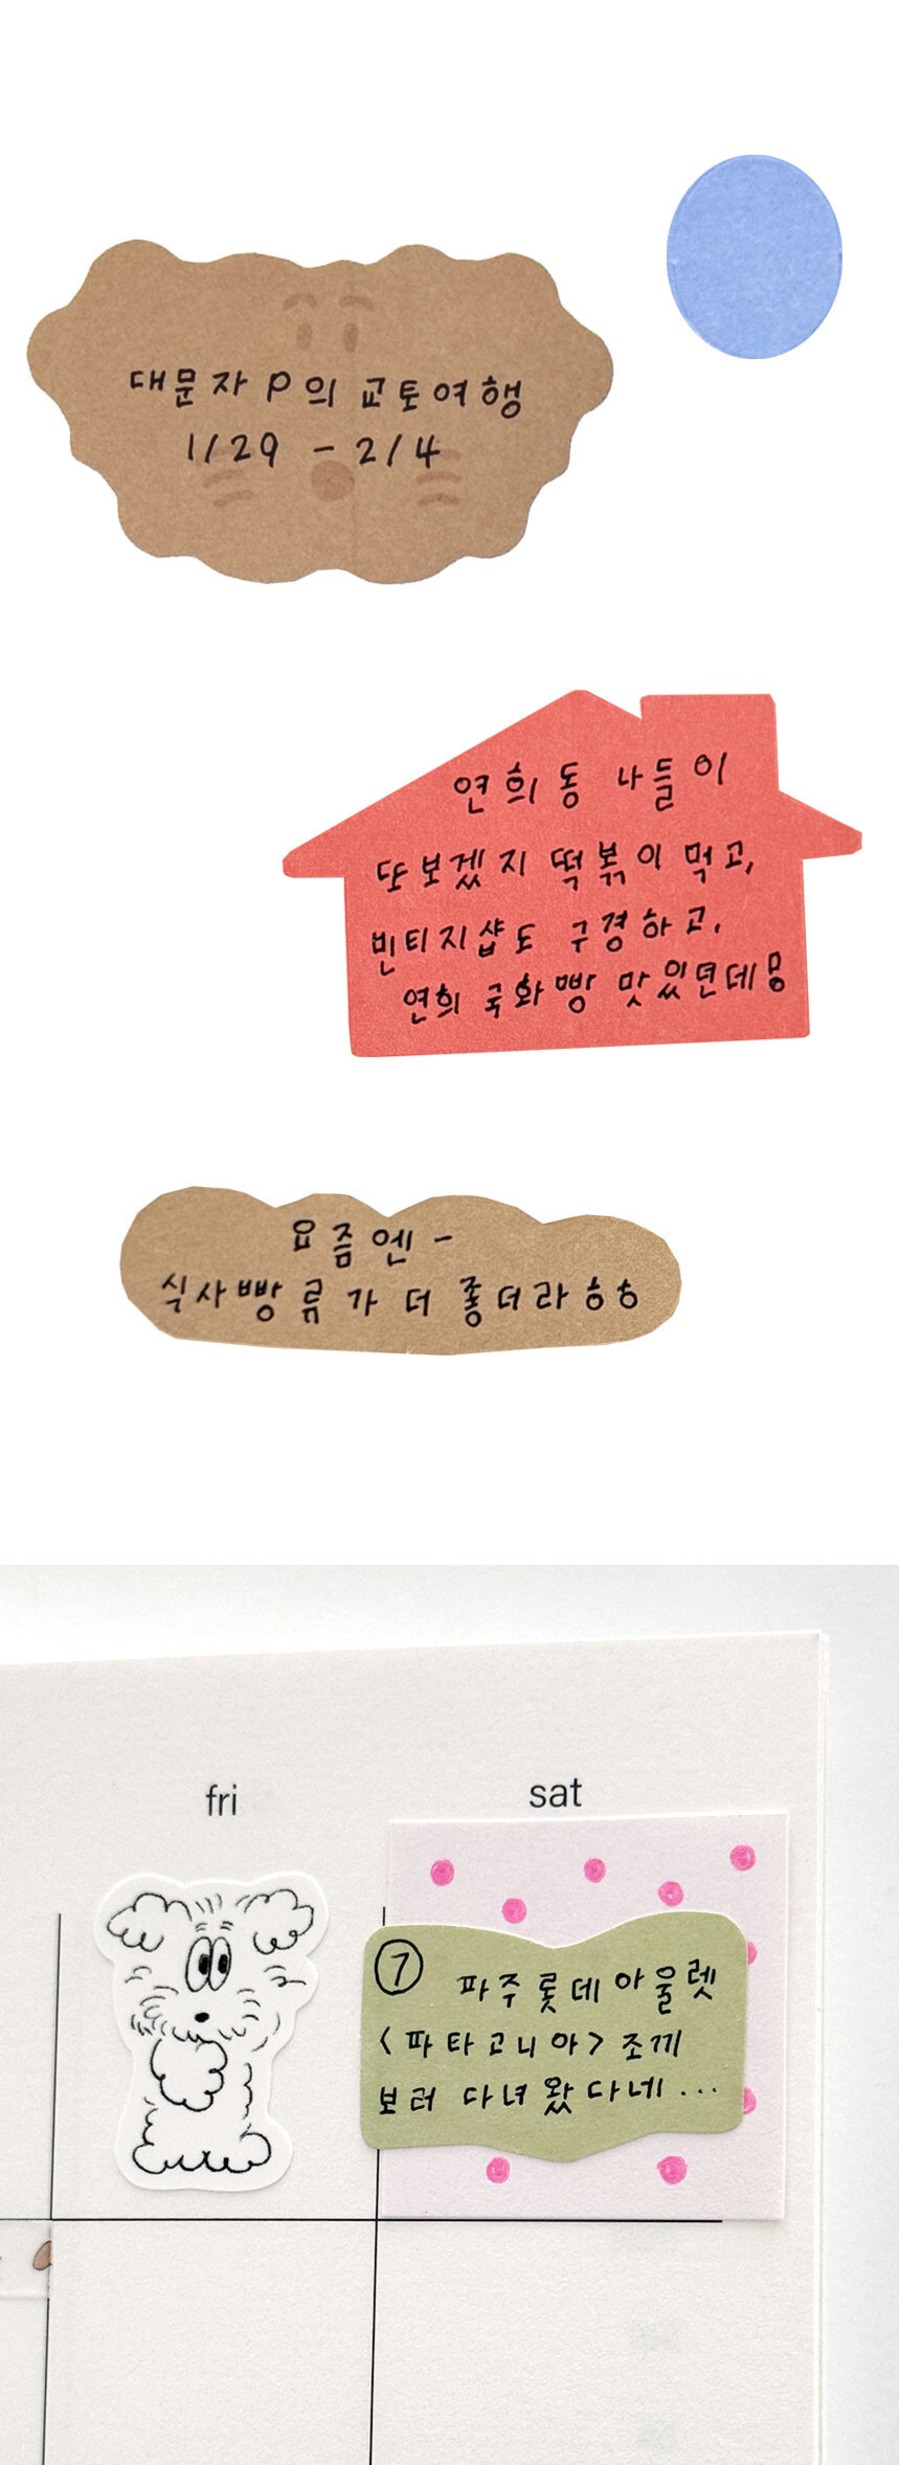 대문자 P의 교토여행
1/29 - 2/4
연희동 나들이
또보겠지 떡볶이 먹고,
빈티지샵도 구경하고,
연희 국화빵 맛있면데몽
요즘엔 -
식사빵류가 더 좋더라ㅎㅎ
fri
sat
⑦ 파주롯데아울렛
<파타고니아> 조끼
보러 다녀왔다네...